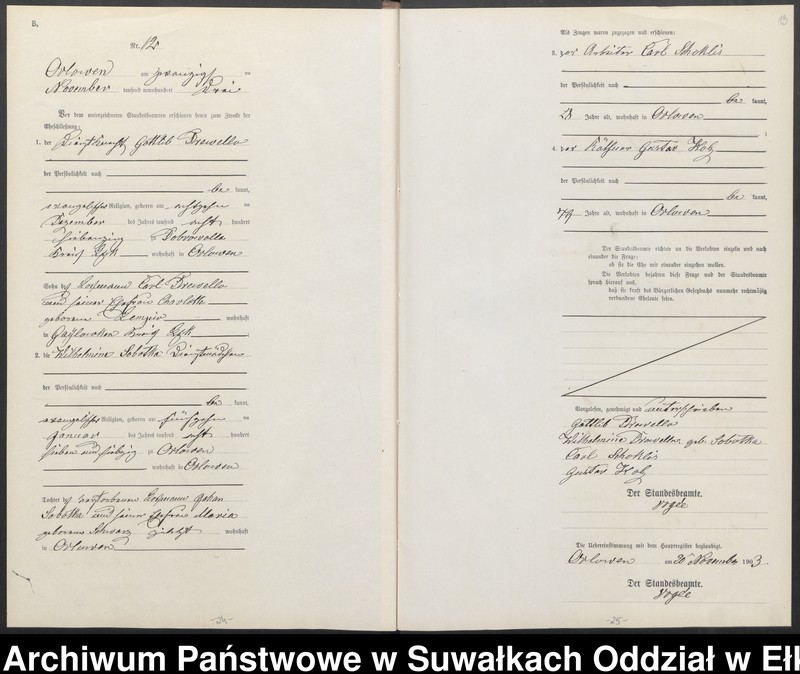 B.
Nr. 12.
Orlowen am zwanzigsten
November tausend neunhundert drei
Vor dem unterzeichneten Standesbeamten erschienen heute zum Zweck der
Eheschließung:
1. der Dienstknecht Gottlib Drewello
der Persönlichkeit nach
be kannt,
evangelischer Religion, geboren am achtzehn ten
Dezember des Jahres tausend acht hundert
siebenzig in Dobrowolla
Kreis Lyck wohnhaft in Orlowen
Sohn des Losmann Carl Drewello
und seiner Ehefrau Charlotte
geborene wohnhaft
in Kreis Lyck
2. die Wilhelmine Sobottka Dienstmädchen
der Persönlichkeit nach
be kannt,
evangelischer Religion, geboren am fünfzehn ten
Januar des Jahres tausend acht hundert
sieben und siebzig in Orlowen
wohnhaft in Orlowen
Tochter des verstorbenen Losmann Johan
Sobottka und seiner Ehefrau Maria
geborene zuletzt wohnhaft
in Orlowen
-24-
13
Als Zeugen waren zugezogen und erschienen:
3. der Arbeiter Carl Skoklis
der Persönlichkeit nach
be kannt,
Jahre alt, wohnhaft in Orlowen
4. der Käthner Gustav
der Persönlichkeit nach
be kannt,
Jahre alt, wohnhaft in Orlowen
Der Standesbeamte richtete an die Verlobten einzeln und nach
einander die Frage:
ob sie die Ehe mit einander eingehen wollen.
Die Verlobten bejahten diese Frage und der Standesbeamte
sprach hierauf aus,
daß sie kraft des Bürgerlichen Gesetzbuchs nunmehr rechtmäßig
verbundene Eheleute seien.
Vorgelesen, genehmigt und unterschrieben
Gottlib Drewello
Wilhelmine Drewello geb. Sobottka
Carl Skoklis
Gustav
Der Standesbeamte.
Vogée
Die Uebereinstimmung mit dem Hauptregister beglaubigt.
Orlowen am 20 November 1903.
Der Standesbeamte.
Vogée
-25-
Archiwum Państwowe w Suwałkach Oddział w Ełk